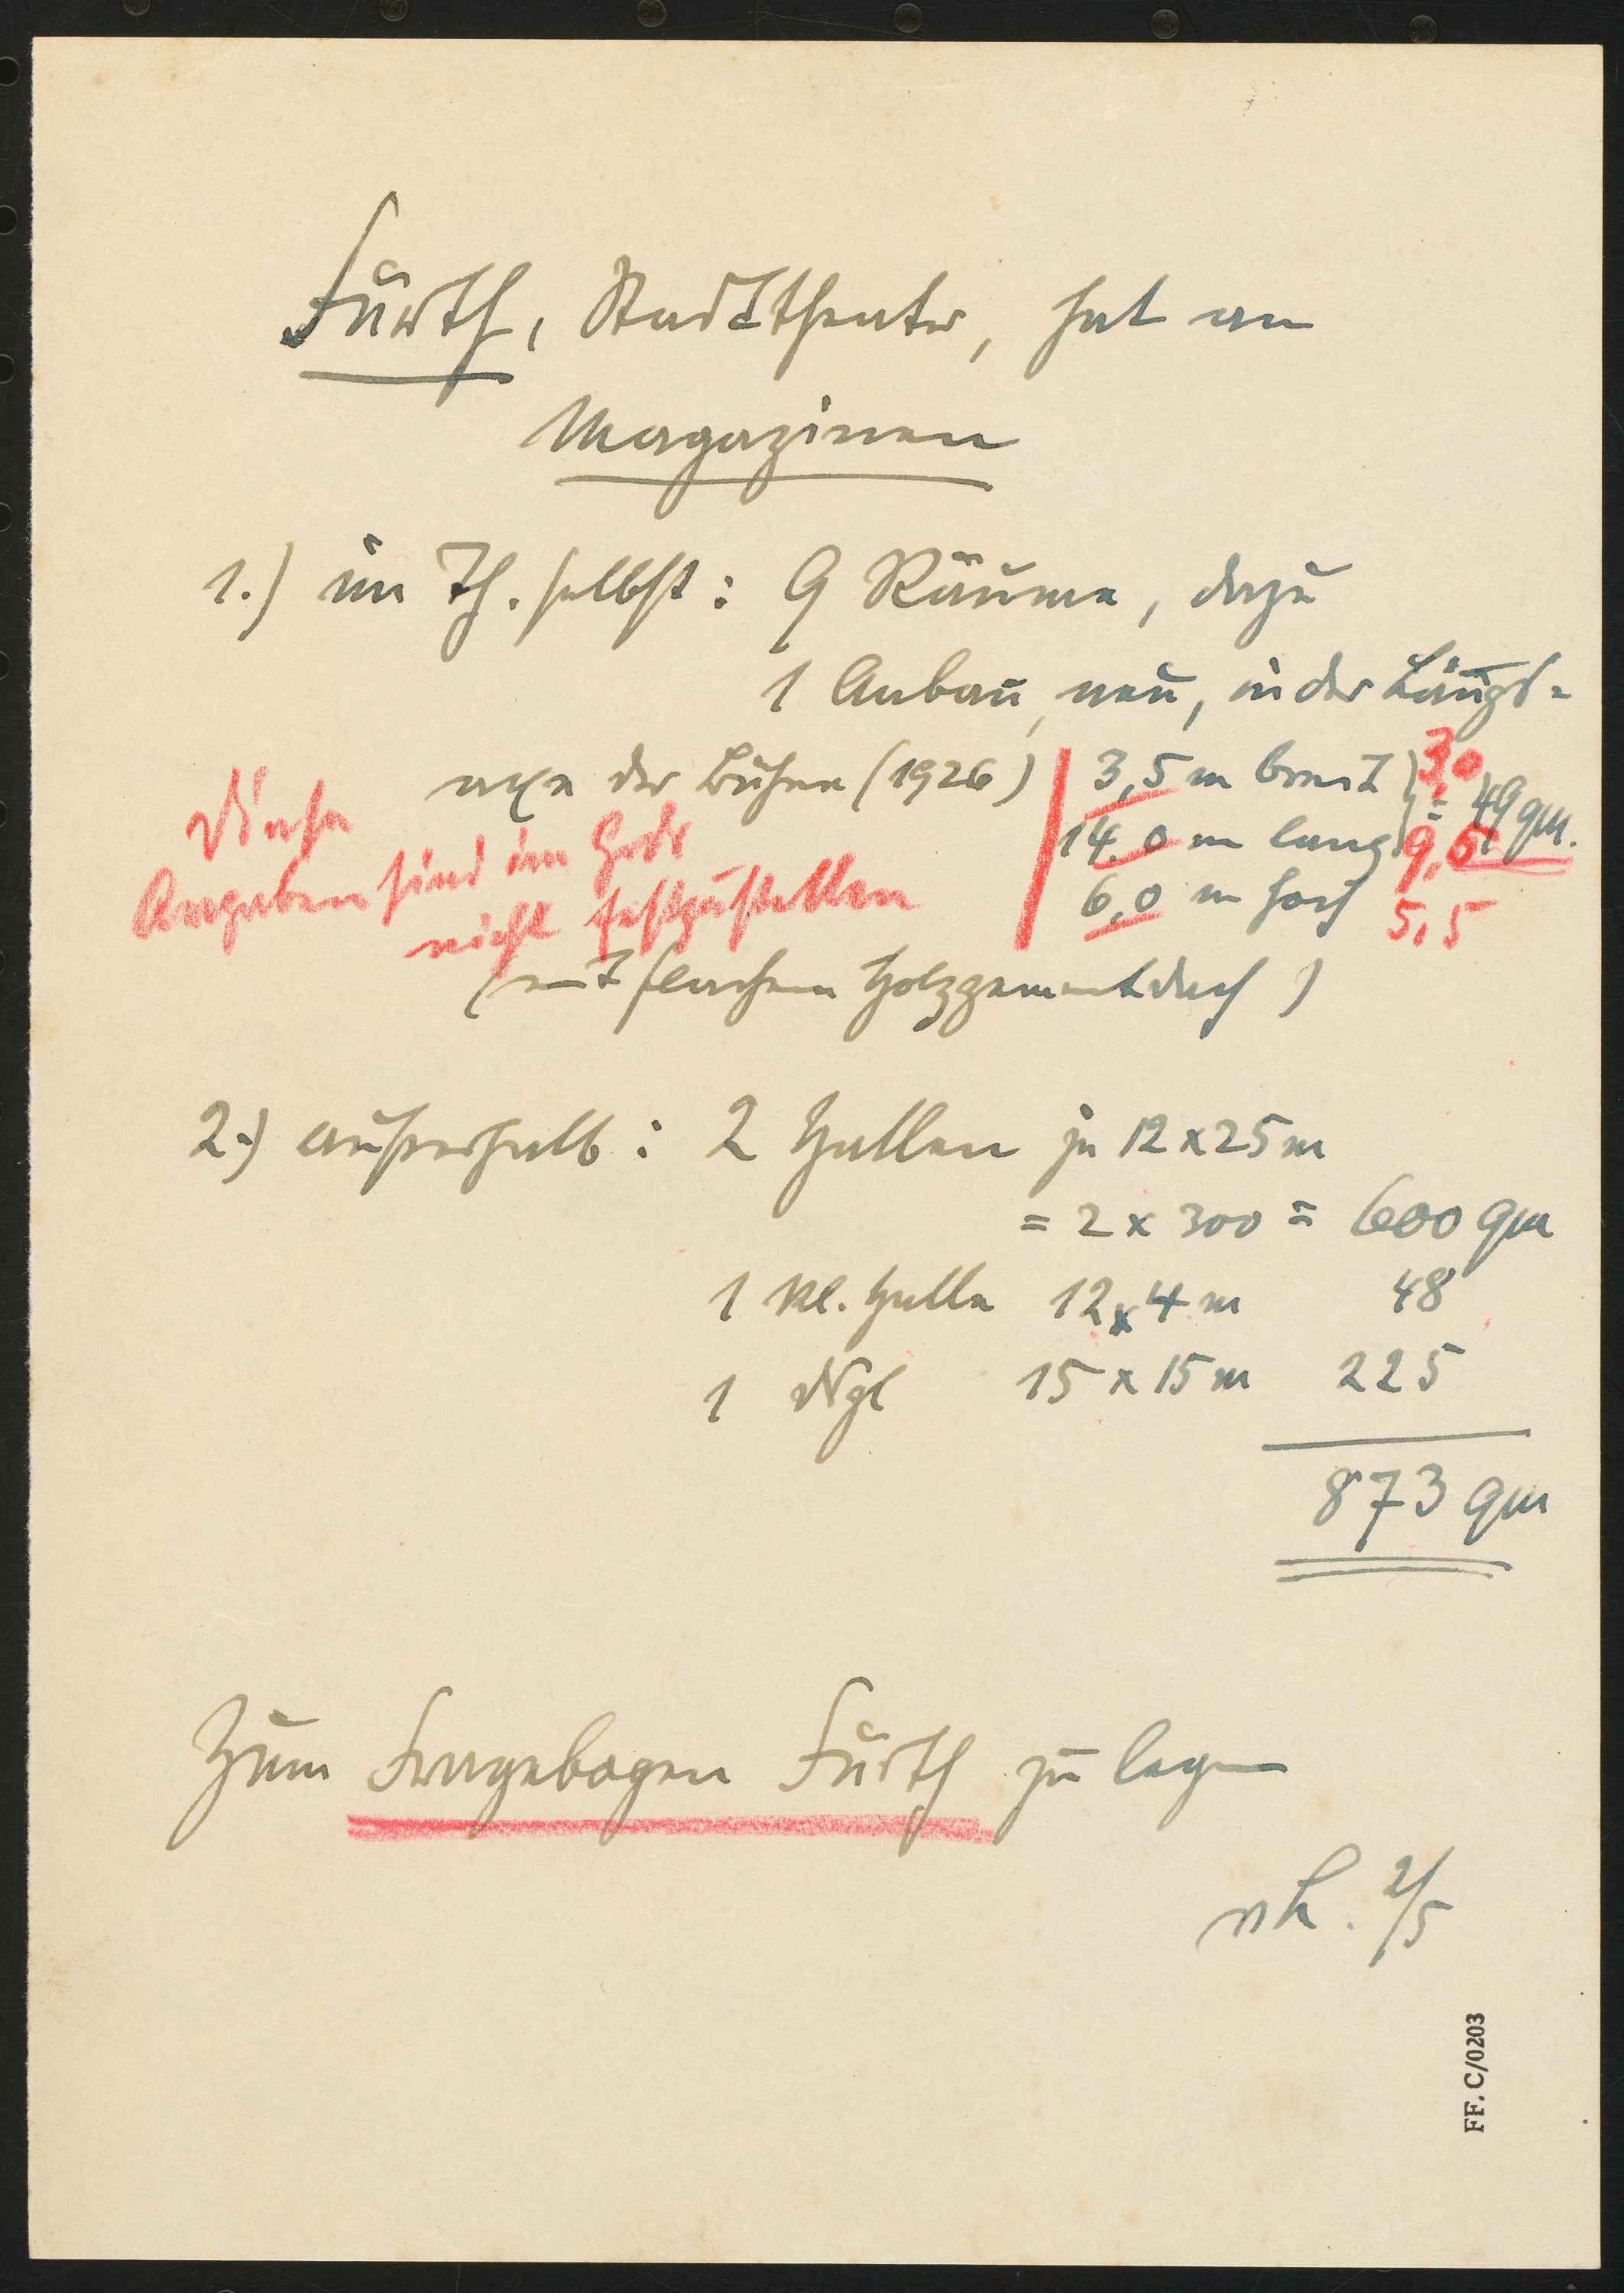 Fürth, Stadttheater, hat an
Magazinen
1.) im Th. selbst: 9 Räume, dazu
1 Anbau, neu, in der Längs-
axe der Bühne (1926) 3,5 m breit 3,0
14,0 m lang = 49 qm. 9,5
6,0 m hoch 5,5
Diese
Angaben sind im
nicht festzustellen
(mit flachem Holzzementdach)
2.) außerhalb: 2 Hallen je 12 x 25 m
= 2 x 300 = 600 qm
1 kl. Halle 12 x 4 m 48
1 dgl 15 x 15 m 225
873 qm
Zum Fragebogen Fürth zu legen
2/5
FF. C/0203